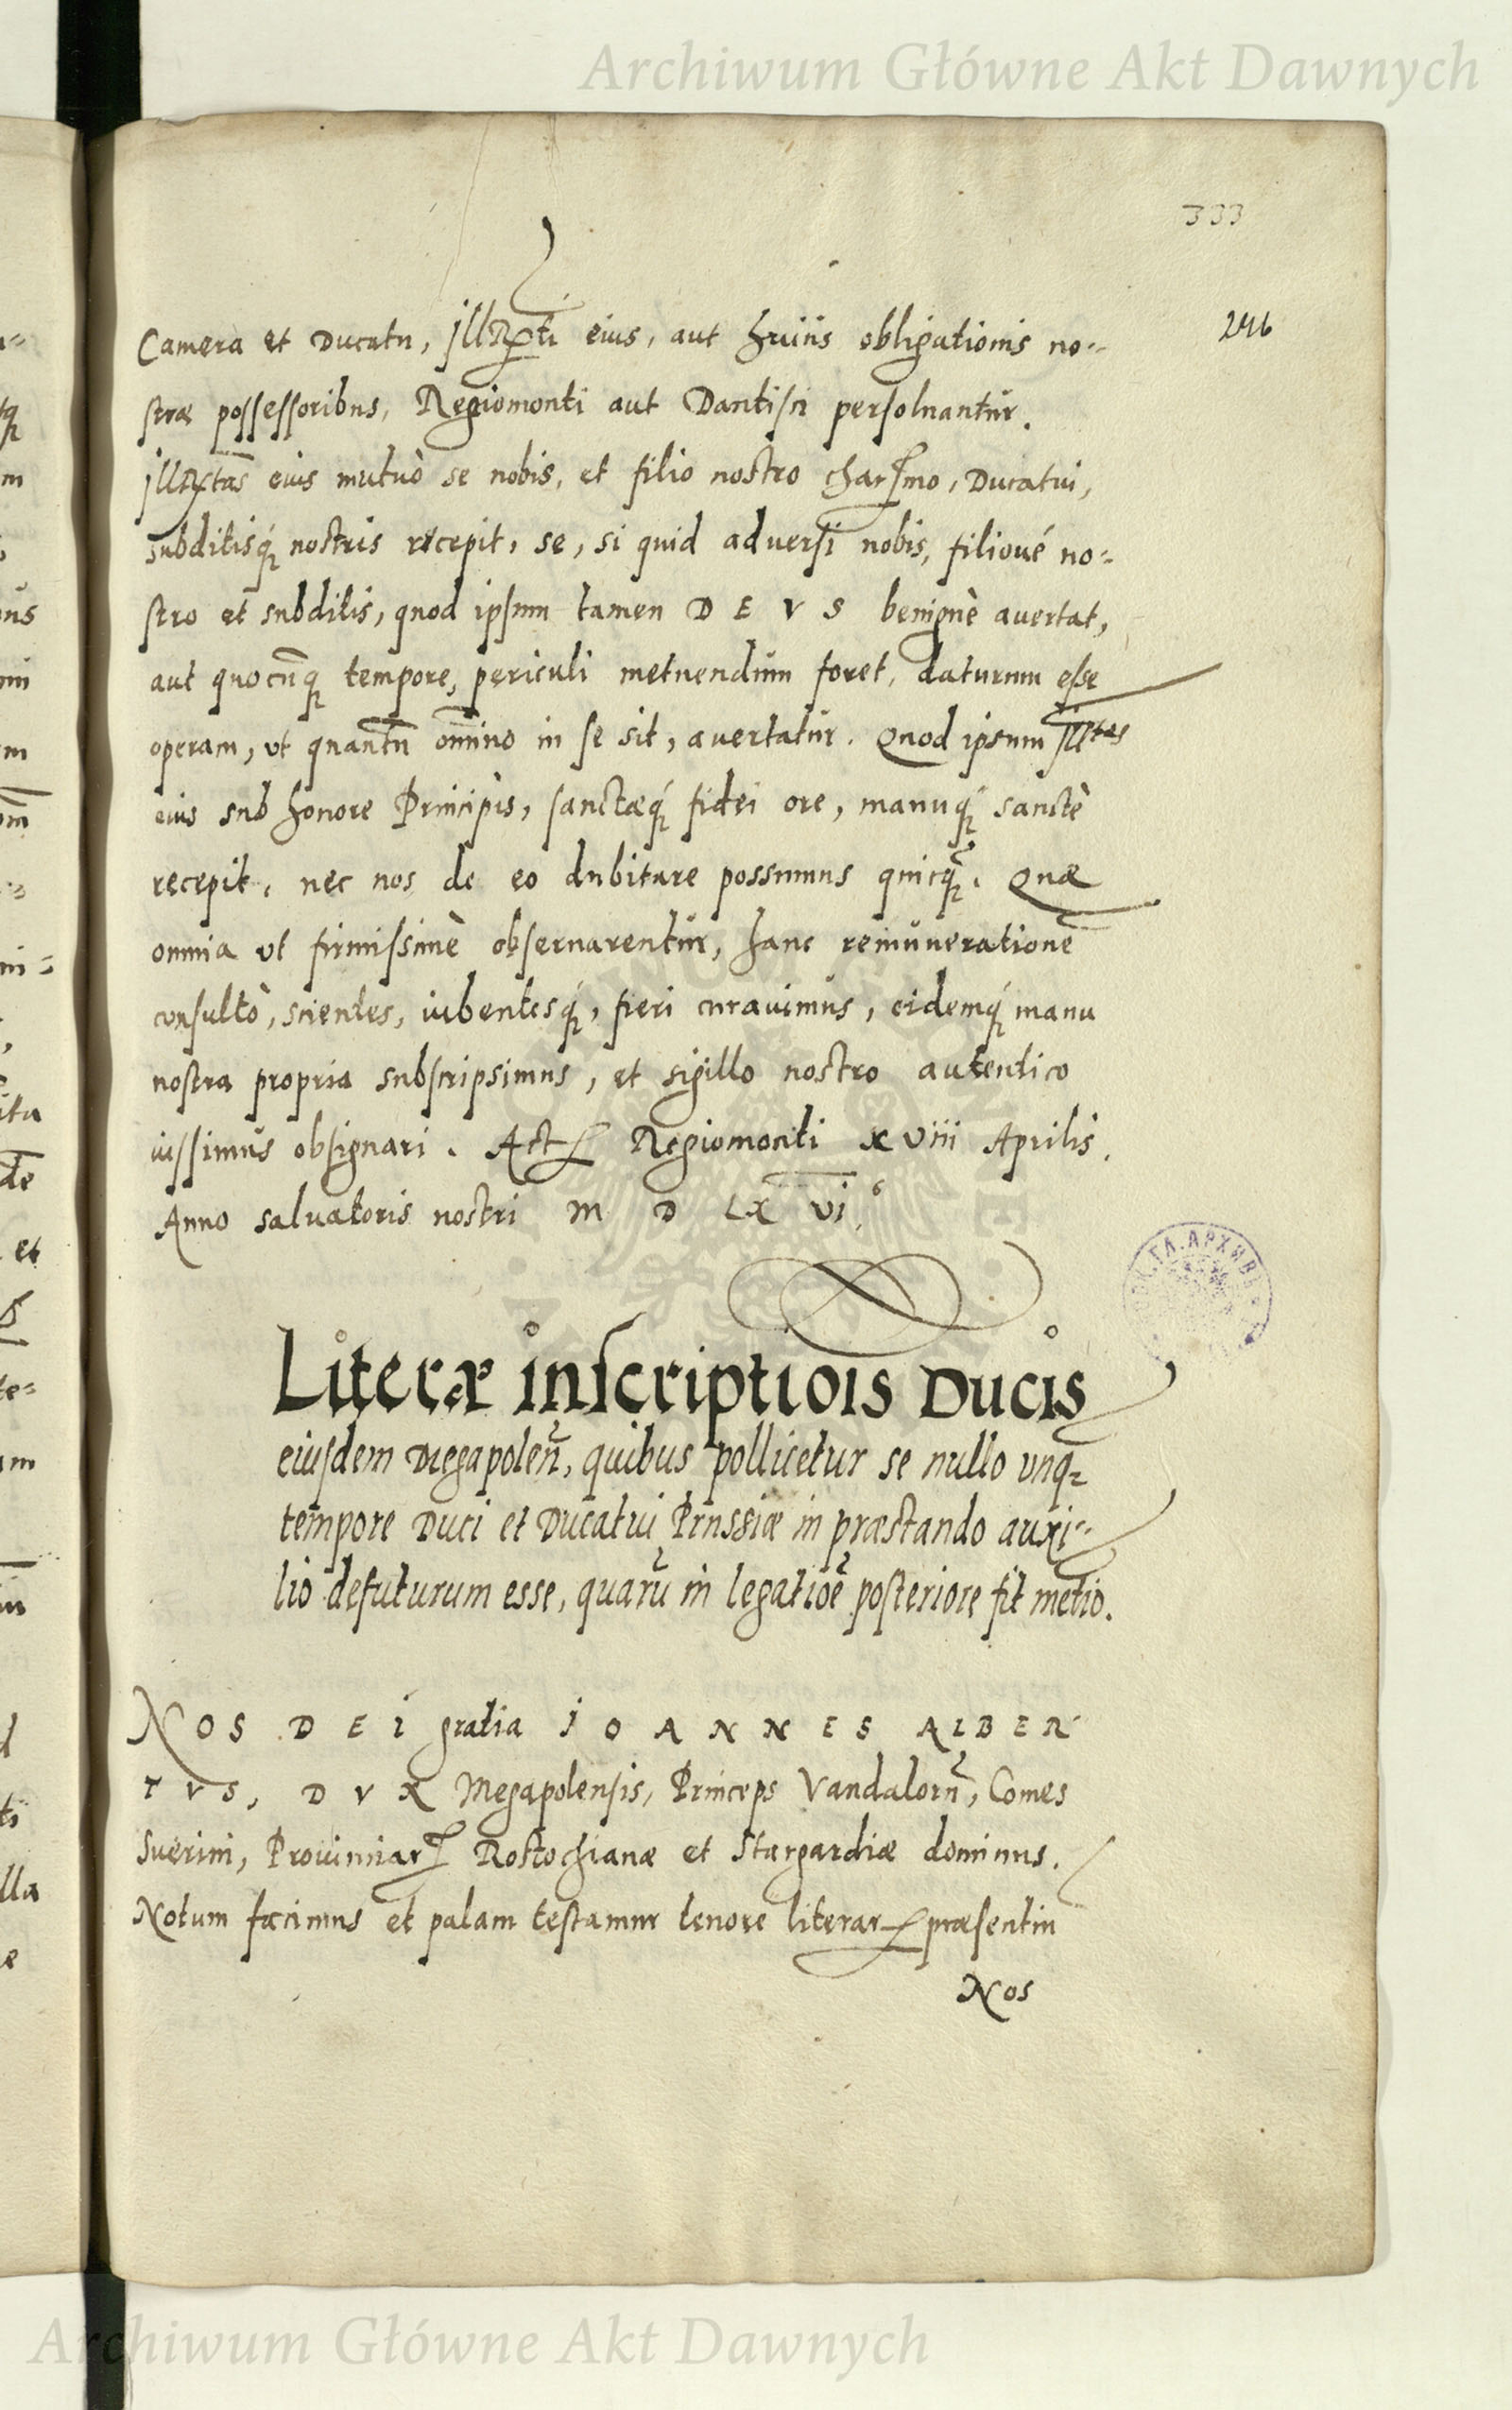 Archiwum Główne Akt Dawnych
333
246
Camera et Ducatu, Ill̄r̄ti eius, aut huius obligationis no=
stræ possessoribus, Regiomonti aut Dantisci persoluantur.
Ill̄r̄tas eius mutuò se nobis, et filio nostro charissmo, Ducatui,
subditisq́ꝫ nostris recepit, se, si quid adversi nobis, filioué no=
stro et subditis, quod ipsum tamen D E V S benignè auertat,
aut quocūqꝫ tempore, periculi metuendum foret, daturum esse
operam, vt quantū om̄ino in se sit, auertatur. Quod ipsum Ill̄tas
eius sub honore Principis, sanctæq́ꝫ fidei ore, manuq́ꝫ sanctè
recepit, nec nos de eo dubitare possumus quicq̄ꝫ. Quæ
omnia vt firmissimè obseruarentur, hanc remunerationē
consultò, scientes, iubentesq́ꝫ, fieri curauimus, eidemq́ꝫ manu
nostra propria subscripsimus, et sigillo nostro autentico
iussimus obsignari. Actꝭ Regiomonti xviii Aprilis.
Anno saluatoris nostri M D LX vi.⁶
Literæ inscriptiois Ducis
eiusdem Megapolen̄, quibus pollicetur se nullo vnqꝫ
tempore Duci et Ducatui Prussiæ in præstando auxi=
lio defuturum esse, quarū in legatiōe posteriore fit metio.
NOS D E I gratia I O A N N E S ALBER
T V S, D V X Megapolensis, Princeps Vandalorū, Comes
Suerini, Prouinciarꝝ Rostochianæ et Stargardiæ dominus.
Notum facimus et palam testamur tenore literarꝝ præsentiu
Nos
Archiwum Główne Akt Dawnych